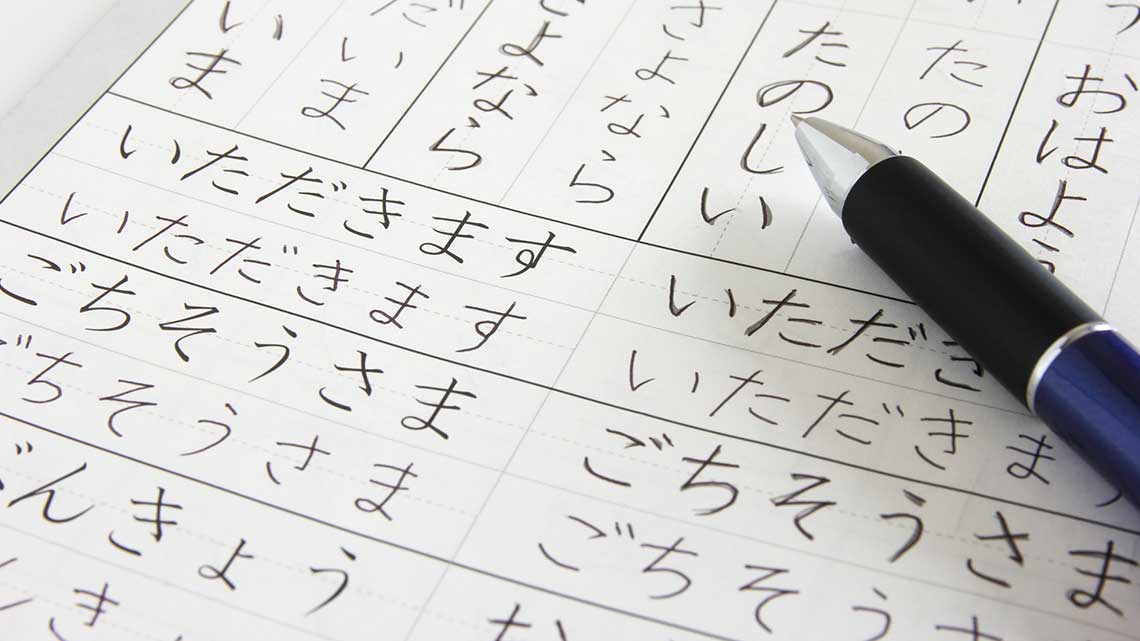 おはよう
たの
たのしい
さよなら
さよなら
だいま
いま
いただきます
いただきます
ごちそうさま
ちそうさま
んきょう
き
いただき
いただきま
ごちそうさま
ごちそう